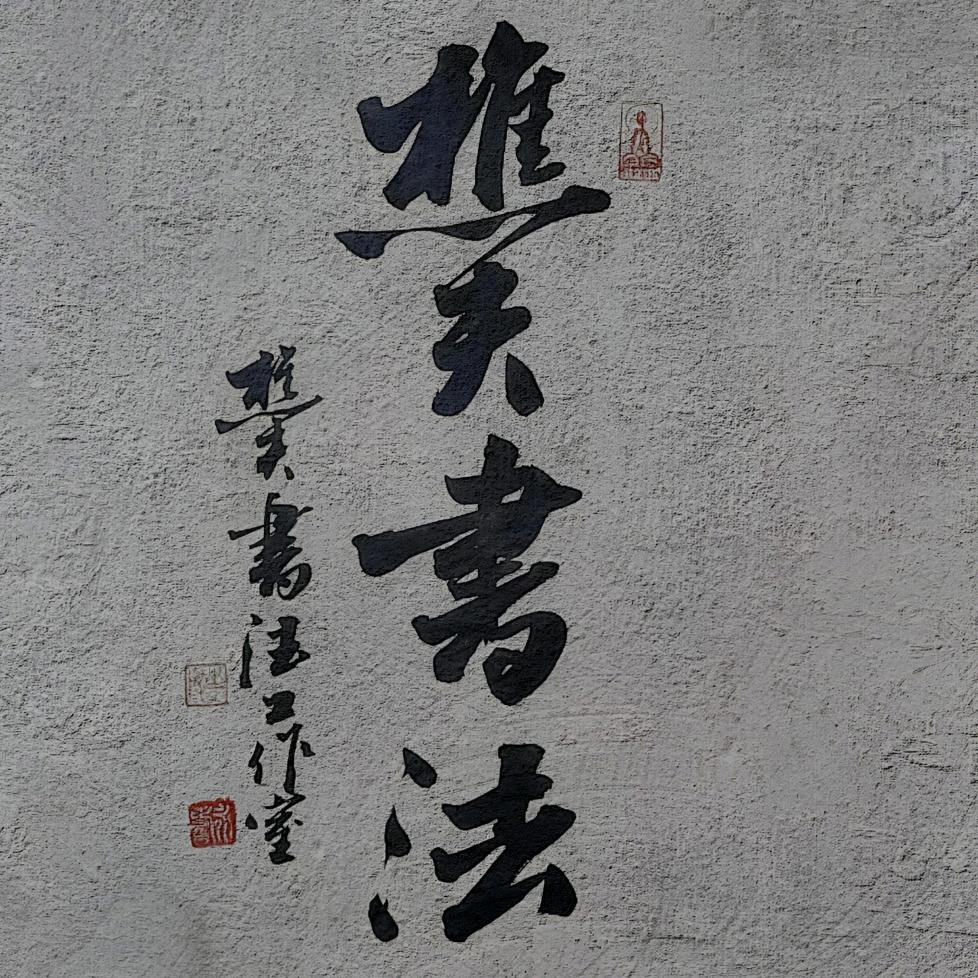 樵夫書法
樵夫書法工作室